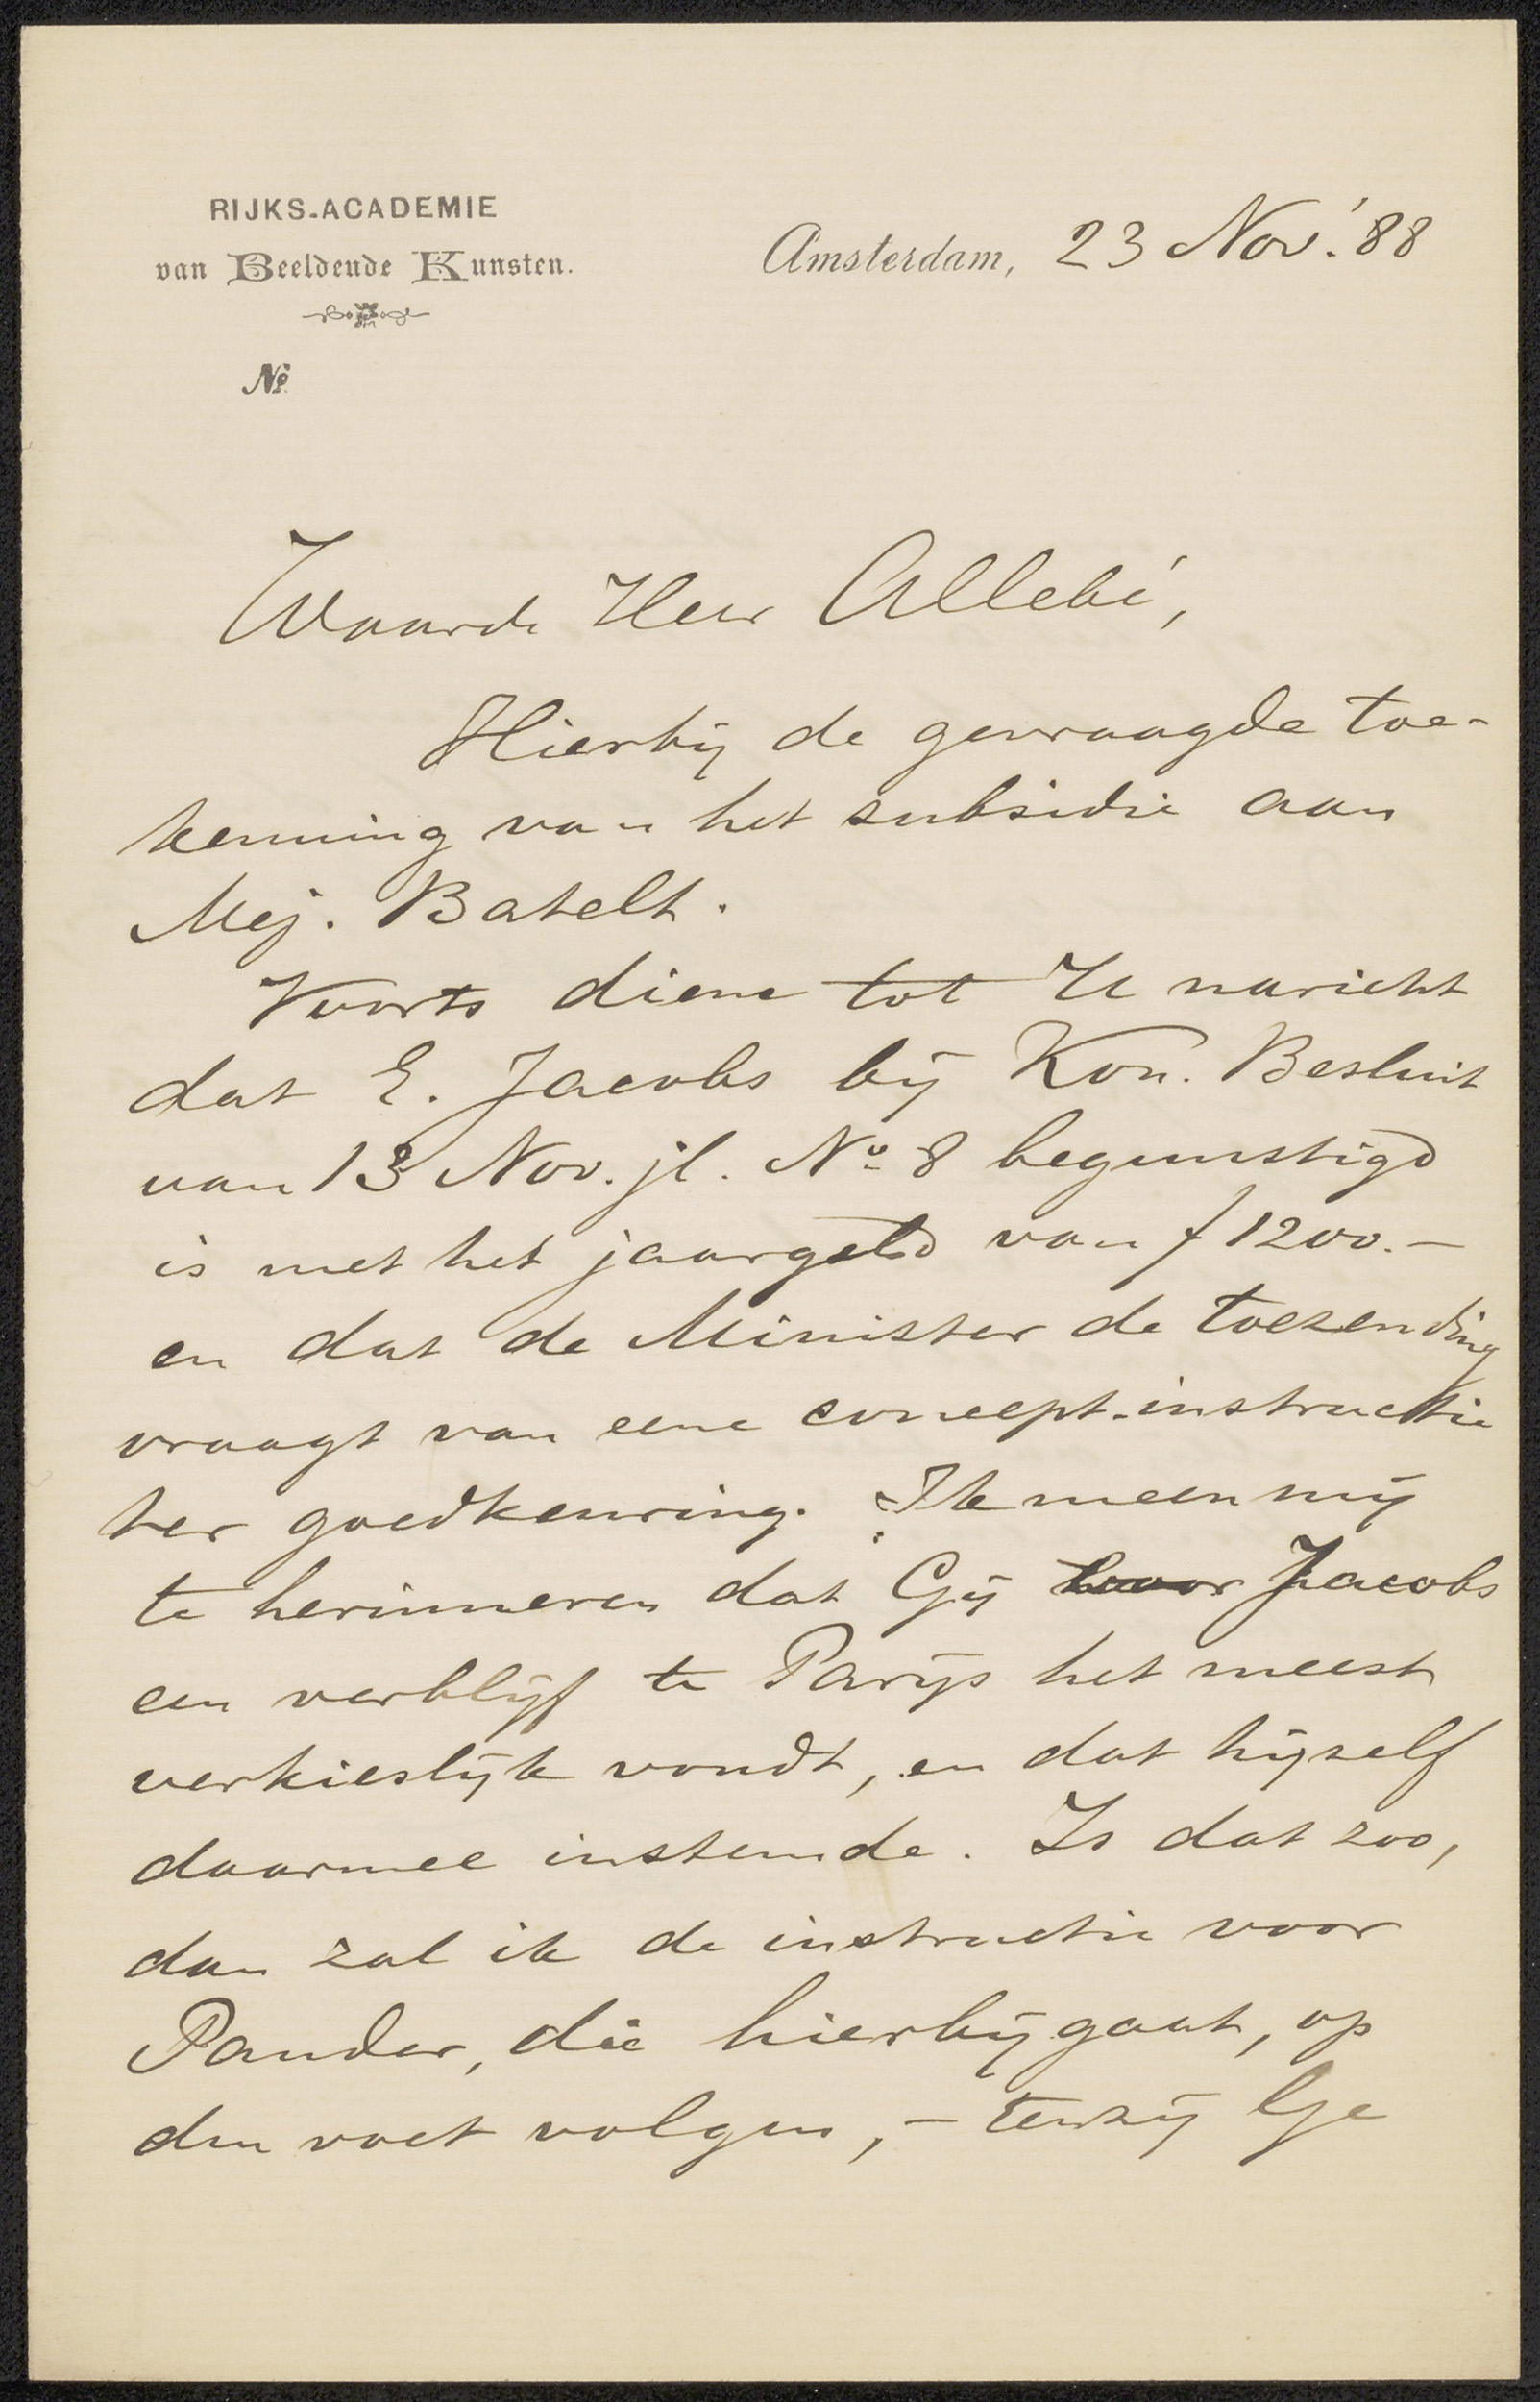 RIJKS-ACADEMIE
van Beeldende Kunsten.
Amsterdam, 23 Nov. '88
No
Waarde Heer Allebé,
Hierbij de gevraagde toe-
kenning van het subsidie aan
Mej. Batelt.
Voorts diene tot Uw naricht
dat E. Jacobs bij Kon. Besluit
van 13 Nov. jl. No 8 begunstigd
is met het jaargeld van f 1200.-
en dat de Minister de toezending
vraagt van eene concept-instructie
ter goedkeuring. Ik meen mij
te herinneren dat Gij voor Jacobs
een verblijf te Parijs het meest
verkieslijk vondt, en dat hijzelf
daarmee instemde. Is dat zoo,
dan zal ik de instructie voor
Pander, die hierbij gaat, op
den voet volgen, - tenzij Ge